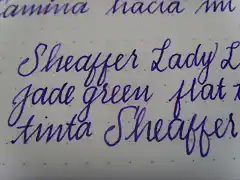 camina hacia mi
Sheaffer Lady L
jade green flat
tinta Sheaffer